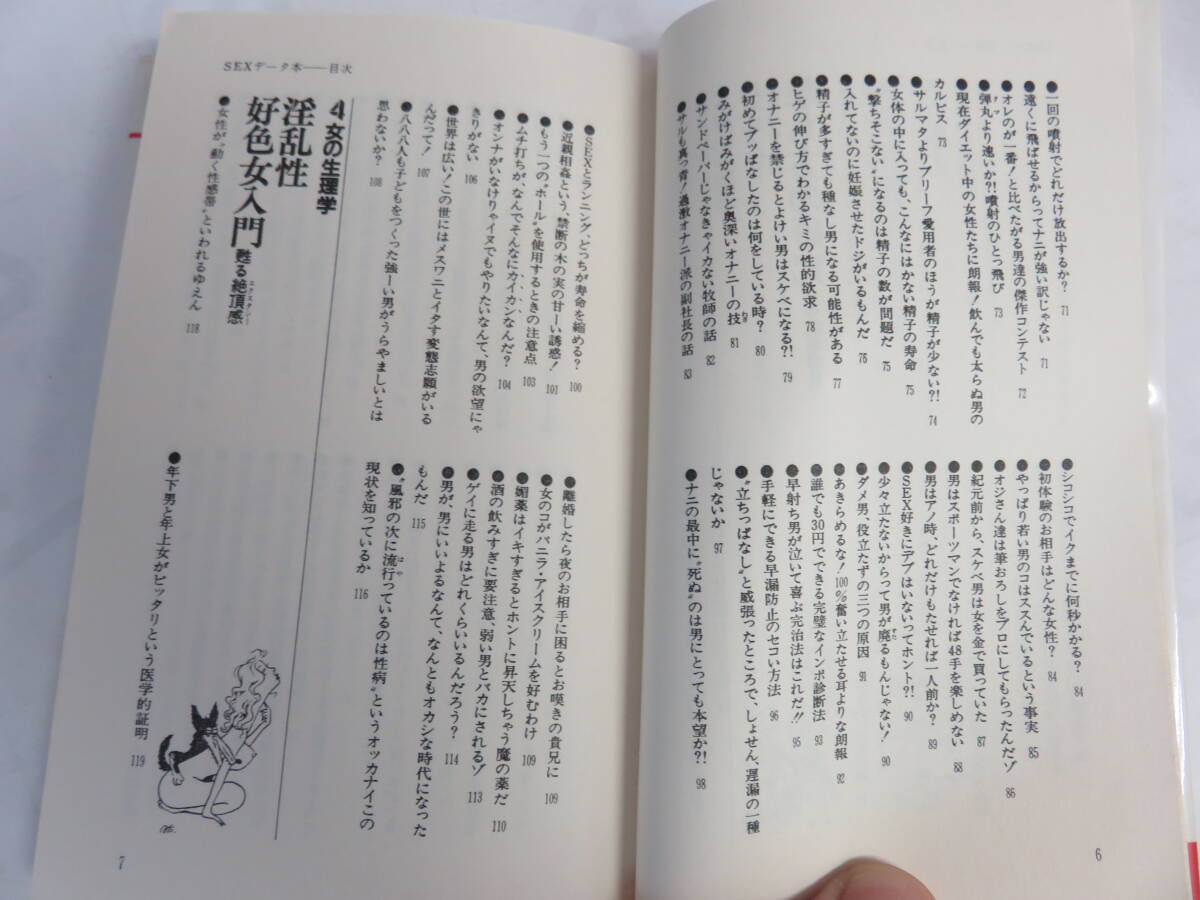 ●一回の噴射でどれだけ放出するか? 71
●遠くに飛ばせるからってナニが強い訳じゃない 71
●オレのが一番!と比べたがる男達の傑作コンテスト 72
●弾丸より速いか?!噴射のひとっ飛び 73
●現在ダイエット中の女性たちに朗報!飲んでも太らぬ男の
カルピス 73
●サルマタよりブリーフ愛用者のほうが精子が少ない?! 74
●女体の中に入っても、こんなにはかない精子の寿命 75
●〝撃ちそこない〟になるのは精子の数が問題だ 75
●入れてないのに妊娠させたドジがいるもんだ 76
●精子が多すぎても種なし男になる可能性がある 77
●ヒゲの伸び方でわかるキミの性的欲求 78
●オナニーを禁じるとよけい男はスケベになる?! 79
●初めてブッぱなしたのは何をしている時? 80
●みがけばみがくほど奥深いオナニーの技 81
●サンドペーパーじゃなきゃイカない牧師の話 82
●サルも真っ青!過激オナニー派の副社長の話 83
●シコシコでイクまでに何秒かかる? 84
●初体験のお相手はどんな女性? 84
●やっぱり若い男のコはススんでいるという事実 85
●オジさん達は筆おろしをプロにしてもらったんだゾ 86
●紀元前から、スケベ男は女を金で買っていた 87
●男はスポーツマンでなければ48手を楽しめない 88
●男はアノ時、どれだけもたせれば一人前か? 89
●SEX好きにデブはいないってホント?! 90
●少々立たないからって男が廃るもんじゃない! 90
●ダメ男 役立たずの三つの原因 91
●あきらめるな!100%奮い立たせる耳よりな朗報 92
●誰でも30円でできる完璧なインポ診断法 93
●早射ち男が泣いて喜ぶ完治法はこれだ!! 95
●手軽にできる早漏防止のセコい方法 96
●〝立ちっぱなし〟と威張ったところで、しょせん、遅漏の一種
じゃないか 97
●ナニの最中に〝死ぬ〟のは男にとっても本望か?! 98
6
SEXデータ本——目次
●SEXとランニング、どっちが寿命を縮める? 100
●近親相姦という、禁断の木の実の甘ーい誘惑! 101
●もう一つの〝ホール〟を使用するときの注意点 103
●ムチ打ちが、なんでそんなにカイカンなんだ? 104
●オンナがいなけりゃイヌでもやりたいなんて、男の欲望にゃ
きりがない 106
●世界は広い!この世にはメスワニとイタす変態志願がいる
んだって! 107
●八八八人も子どもをつくった強ーい男がうらやましいとは
思わないか? 108
●離婚したら夜のお相手に困るとお嘆きの貴兄に 109
●女のコがバニラ・アイスクリームを好むわけ 109
●媚薬はイキすぎるとホントに昇天しちゃう魔の薬だ 110
●酒の飲みすぎに要注意、弱い男とバカにされるゾ 113
●ゲイに走る男はどれくらいいるんだろう? 114
●男が、男にいいよるなんて、なんともオカシな時代になった
もんだ 115
●〝風邪の次に流行っているのは性病〟というオッカナイこの
現状を知っているか 116
4 女の生理学
淫乱性
好色女入門 甦る絶頂感
エクスタシー
●女性が〝動く性感帯〟といわれるゆえん 118
●年下男と年上女がピッタリという医学的証明 119
7